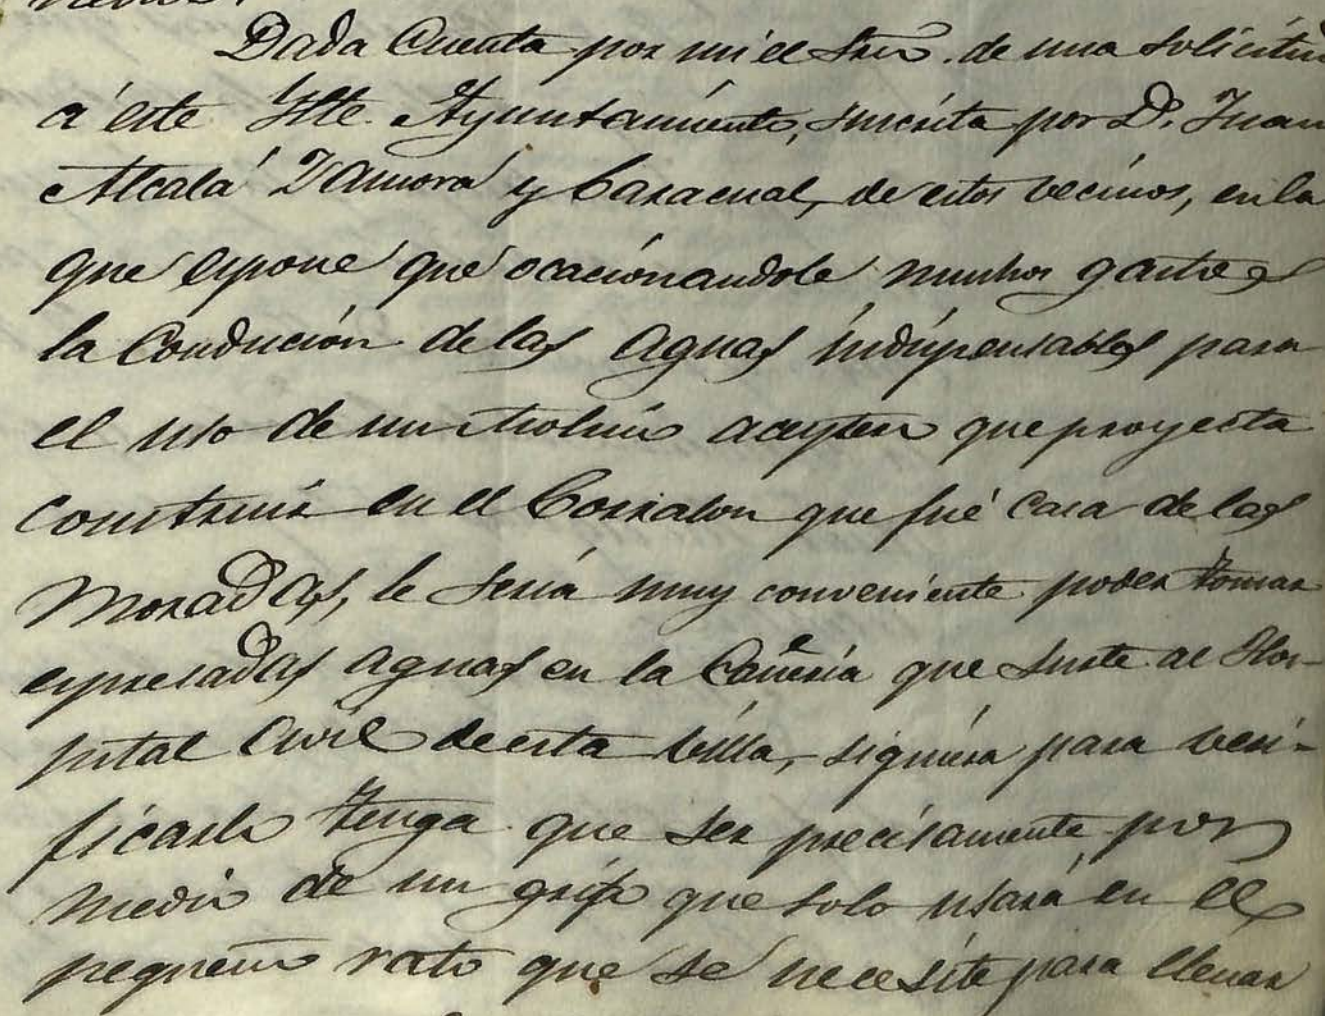 Dada Cuenta por mi el Srio. de una solicitud
á este Ylte. Ayuntamiento, suscrita por D. Juan
Alcalá Zamora y Caracuel, de estos vecinos, en la
que espone que ocacionandole muchos gastos
la Condución de las aguas indispensables para
el uso de un Molino aceytero que proyecta
construir en el Corralon que fué Casa de las
Moradas, le sería muy conveniente poder tomar
espresadas aguas en la Cañería que surte al Hos-
pital Civil de esta villa, siquiera para veri-
ficarlo tenga que ser precisamente por
medio de un grifo que solo usará en el
pequeño rato que se necesite para llenar